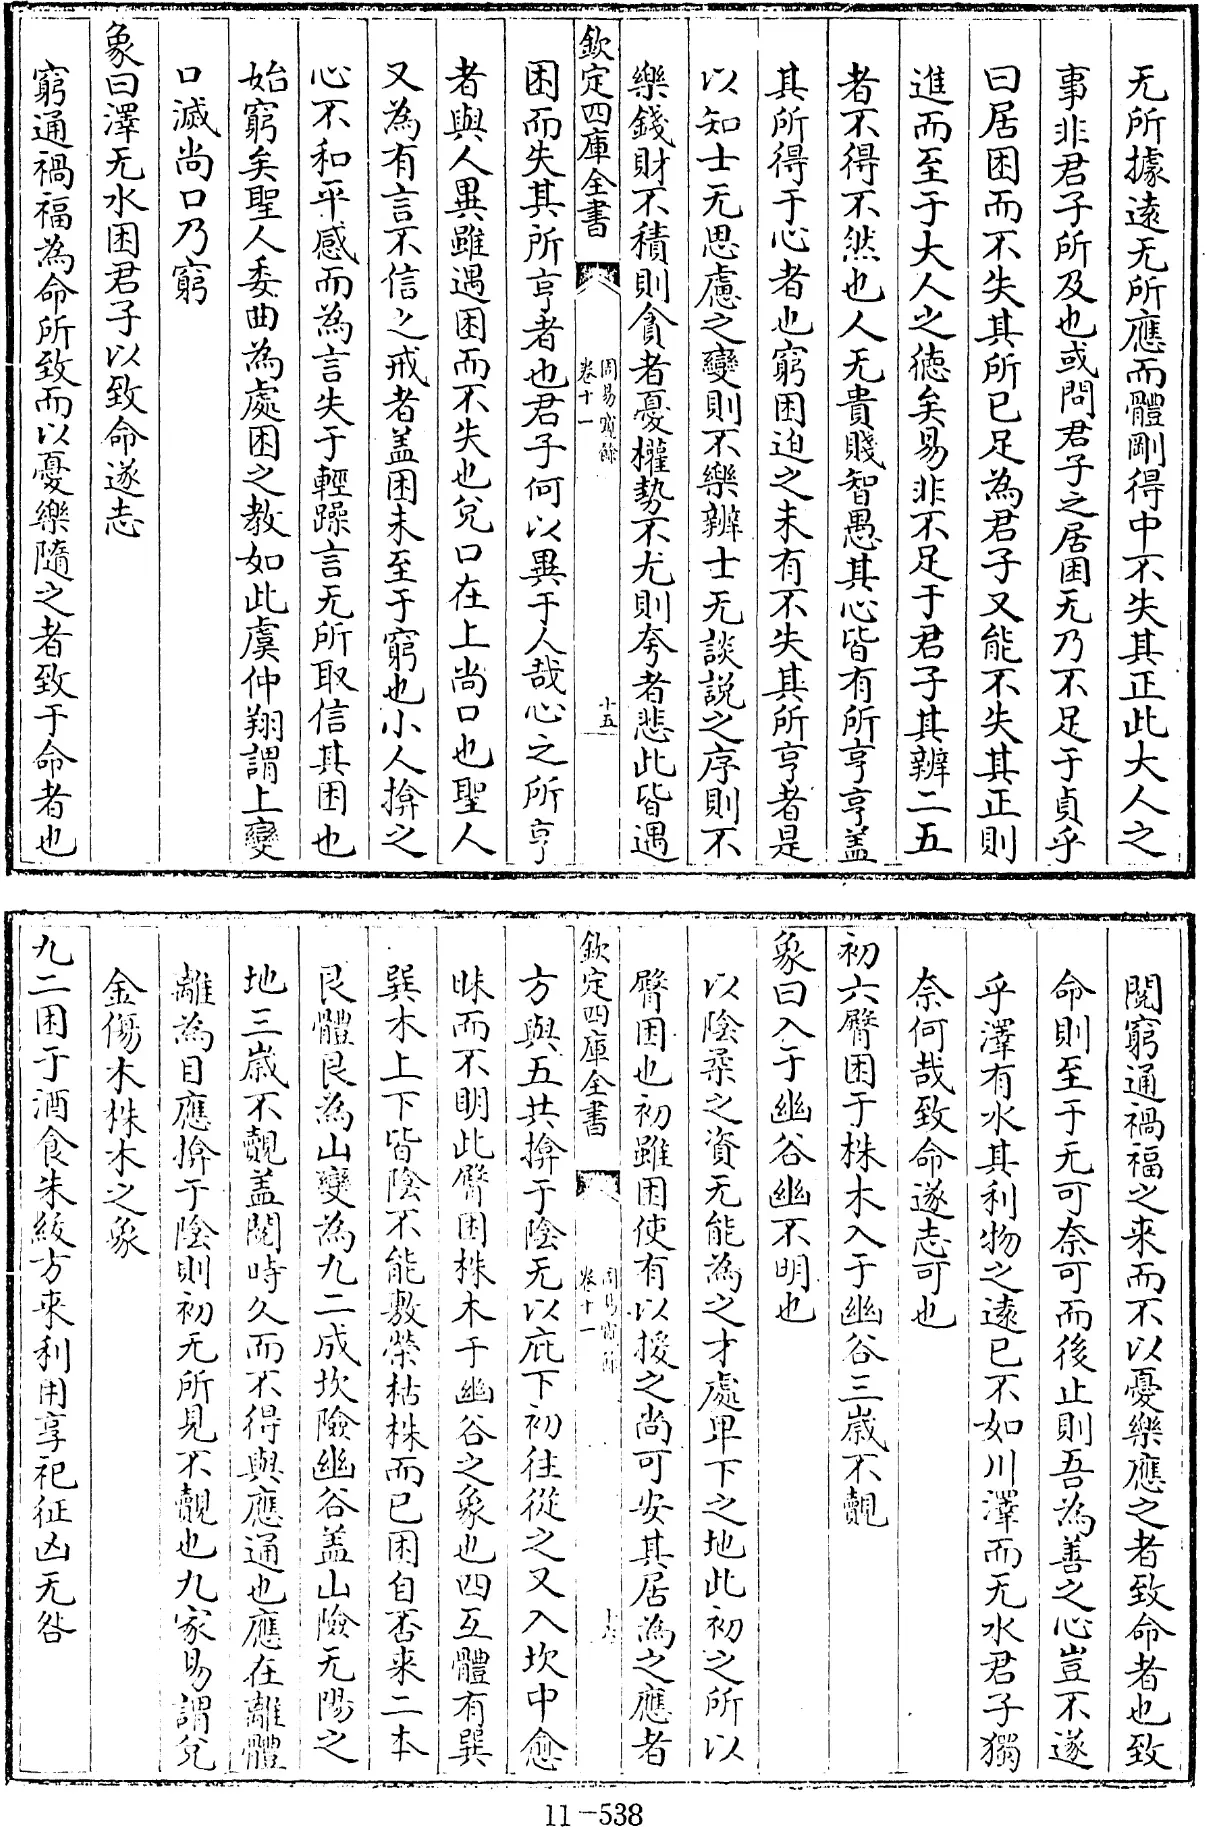 无所據遠无所應而體剛得中不失其正此大人之
事非君子所及也或問君子之居困无乃不足于貞乎
曰居困而不失其所已足為君子又能不失其正則
進而至于大人之徳矣易非不足于君子其辨二五
者不得不然也人无貴賤智愚其心皆有所亨亨盖
其所得于心者也窮困迫之未有不失其所亨者是
以知士无思慮之變則不樂辨士无談説之序則不
樂錢財不積則貪者憂權勢不尤則夸者悲此皆遇
欽定四庫全書
周易窺餘
卷十一
十五
困而失其所亨者也君子何以異于人哉心之所亨
者與人異雖遇困而不失也兌口在上尚口也聖人
又為有言不信之戒者盖困未至于窮也小人揜之
心不和平感而為言失于輕躁言无所取信其困也
始窮矣聖人委曲為處困之教如此虞仲翔謂上變
口滅尚口乃窮
象曰澤无水困君子以致命遂志
窮通禍福為命所致而以憂樂隨之者致于命者也
閱窮通禍福之来而不以憂樂應之者致命者也致
命則至于无可奈可而後止則吾為善之心豈不遂
乎澤有水其利物之遠已不如川澤而无水君子獨
奈何哉致命遂志可也
初六臀困于株木入于幽谷三歳不覿
象曰入于幽谷幽不明也
以陰柔之資无能為之才處卑下之地此初之所以
臀困也初雖困使有以援之尚可安其居為之應者
欽定四庫全書
周易窺餘
卷十一
十六
方與五共揜于陰无以庇下初往從之又入坎中愈
昧而不明此臀困株木于幽谷之象也四互體有巽
巽木上下皆陰不能敷榮枯株而已困自否来二本
艮體艮為山變為九二成坎險幽谷盖山險无陽之
地三歳不覿盖閱時久而不得與應通也應在離體
離為目應揜于陰則初无所見不覿也九家易謂兌
金傷木株木之象
九二困于酒食朱紱方来利用享祀征凶无咎
11-538